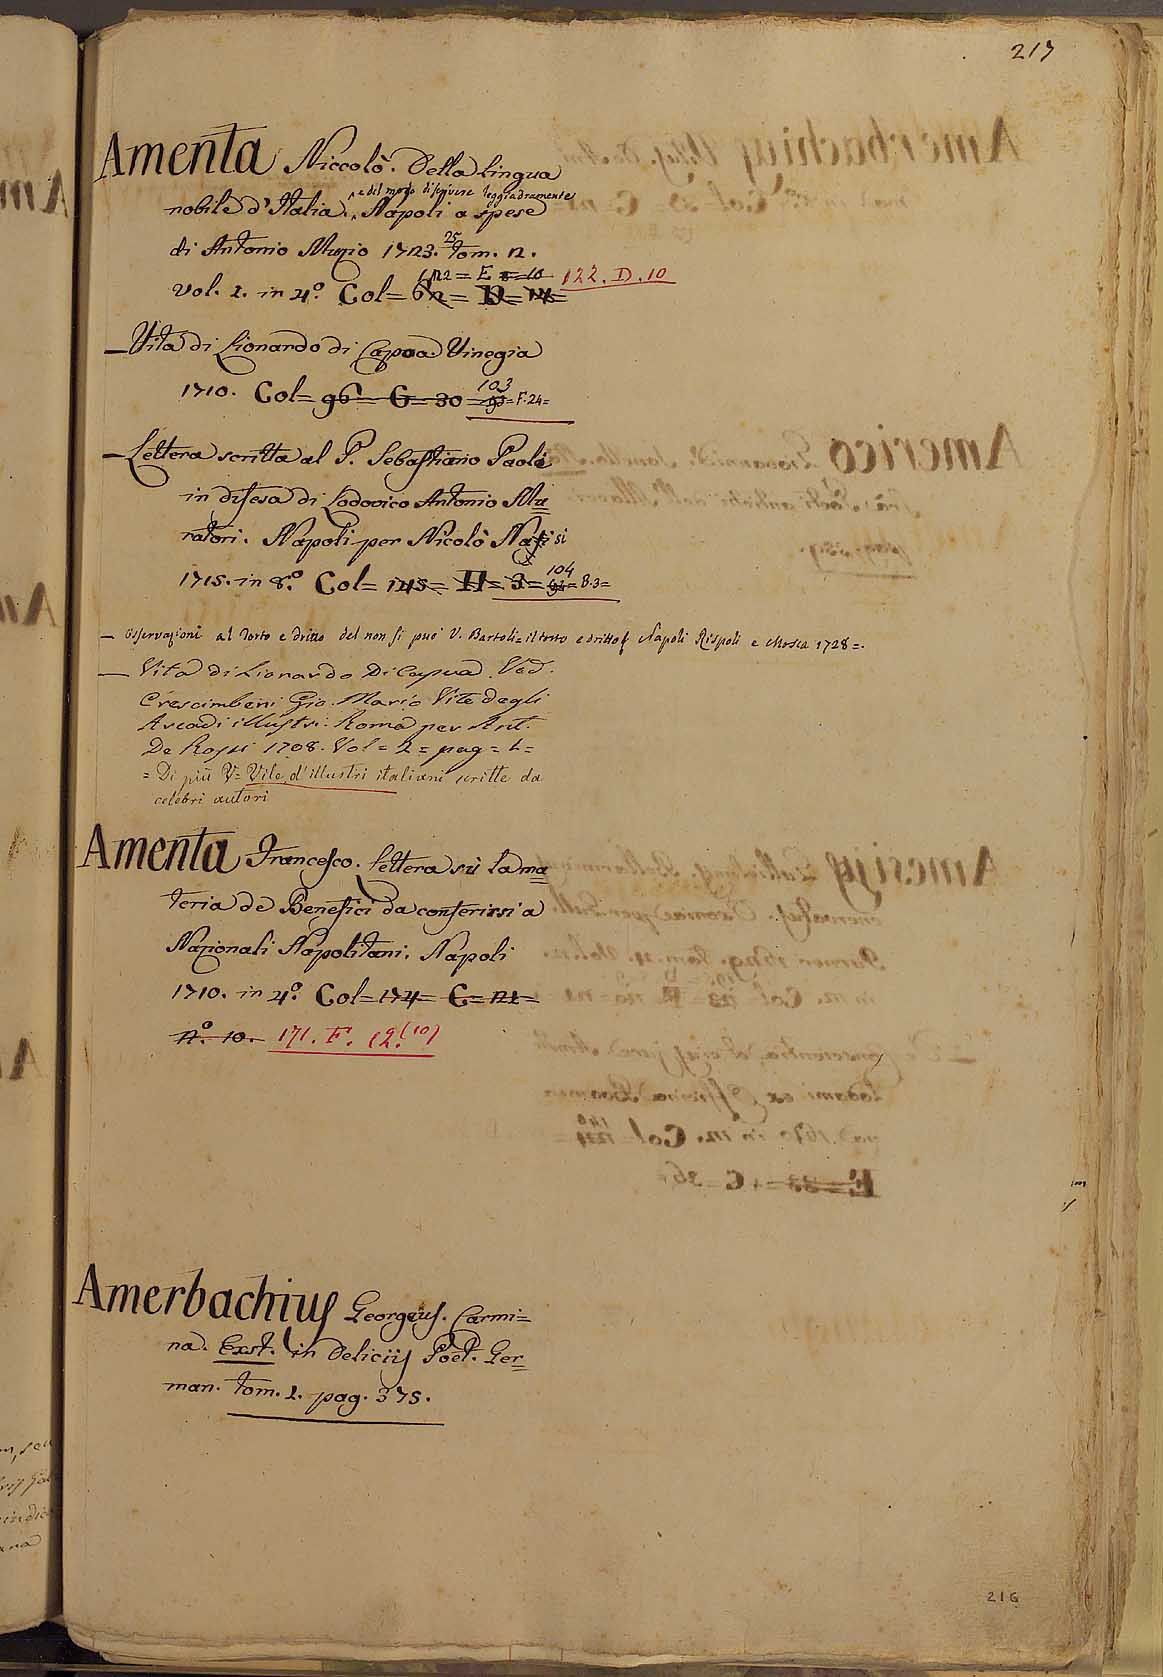 217
Amenta Niccolò. Della lingua
nobile d'Italia, e del modo di scrivere leggiadramente Napoli a spese
di Antonio Muzio 1723. 25 tom. 2.
122 = E = 10 122. D. 10
vol. 1. in 4.º Col = 62 = D = 14 =
— Vita di Lionardo di Capoa. Vinegia
1710. Col = 96 = G = 30 = 103 = F. 24 =
— Lettera scritta al P. Sebastiano Paoli
in difesa di Lodovico Antonio Mu=
ratori. Napoli per Nicolò Nasi si
1715. in 8.º Col = 145 = H = 3 = 104 = B. 3 =
— Osservazioni al Torto e dritto del non si può V. Bartoli = il torto e dritto Napoli Rispoli e Mosca 1728 =.
— Vita di Lionardo Di Capua. Ved.
Crescimbeni Gio. Mario Vite degli
Arcadi illustri. Roma per Ant.
De Rossi 1708. Vol = 2 = pag = 1 =
= Di più V = Vite d'illustri italiani scritte da
celebri autori
Amenta Francesco. lettera sù la ma=
teria de Benefici da conferirsi a
Nazionali Napolitani. Napoli
1710. in 4.º Col = 174 = C = 21 =
n.º 10. 171. F. 12.(10)
Amerbachius Georgius. Carmi=
na. Exst. in Deliciis Poët. Ger=
man. tom. 1. pag. 375.
216